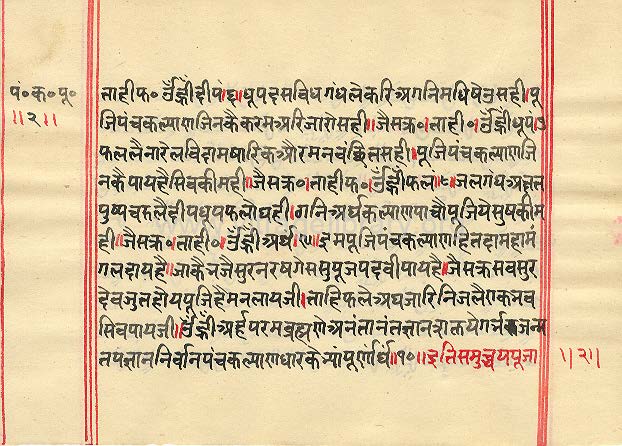 पं॰क॰पू॰
॥२॥
ताहीफ॰ ॐह्रीँदीपं॥६॥धूपदसविधगंधलेकरिअगनिमधिषेवुसही।पू
जिपंचकल्याणजिनकैकरमअरिजारोसही॥जैसक्र॰।ताही॰।ॐह्रीँधूपं७
फललैनारेलविदामषारिकऔरमनवंछितसही।पूजिपंचकल्याणजि
नकैपायहैसिवकीमही।जैसक्र॰।ताहीफ॰।ॐह्रीँफलं॥८॥जलगंधअक्षत
पुष्पचरुलैदीपधूपफलौघही।गनिअर्थकल्याणपाचौपूजियेसुषकीम
ही॥जैसक्र॰।ताही॰।ॐह्रीँअर्घं॥९॥इमपूजिपंचकल्याणहितदामहामं
गलदायहै॥जाकैजजैसुरनरषगेससुपूजपदवीपायहै॥जैसक्रसबसुर
देवजुतहोयपूजिहैमनलायजी।ताहिफलैअघजारिनिजलैएकभव
सिवपायजी॥ॐह्रीँअर्हंपरमब्रह्मणेअनंतानंतज्ञानशक्तयेगर्भजन्म
तपज्ञाननिर्वानपंचकल्याणधारकेभ्योपूर्णार्घं॥१०॥इतिसमुच्चयपूजा
॥२॥